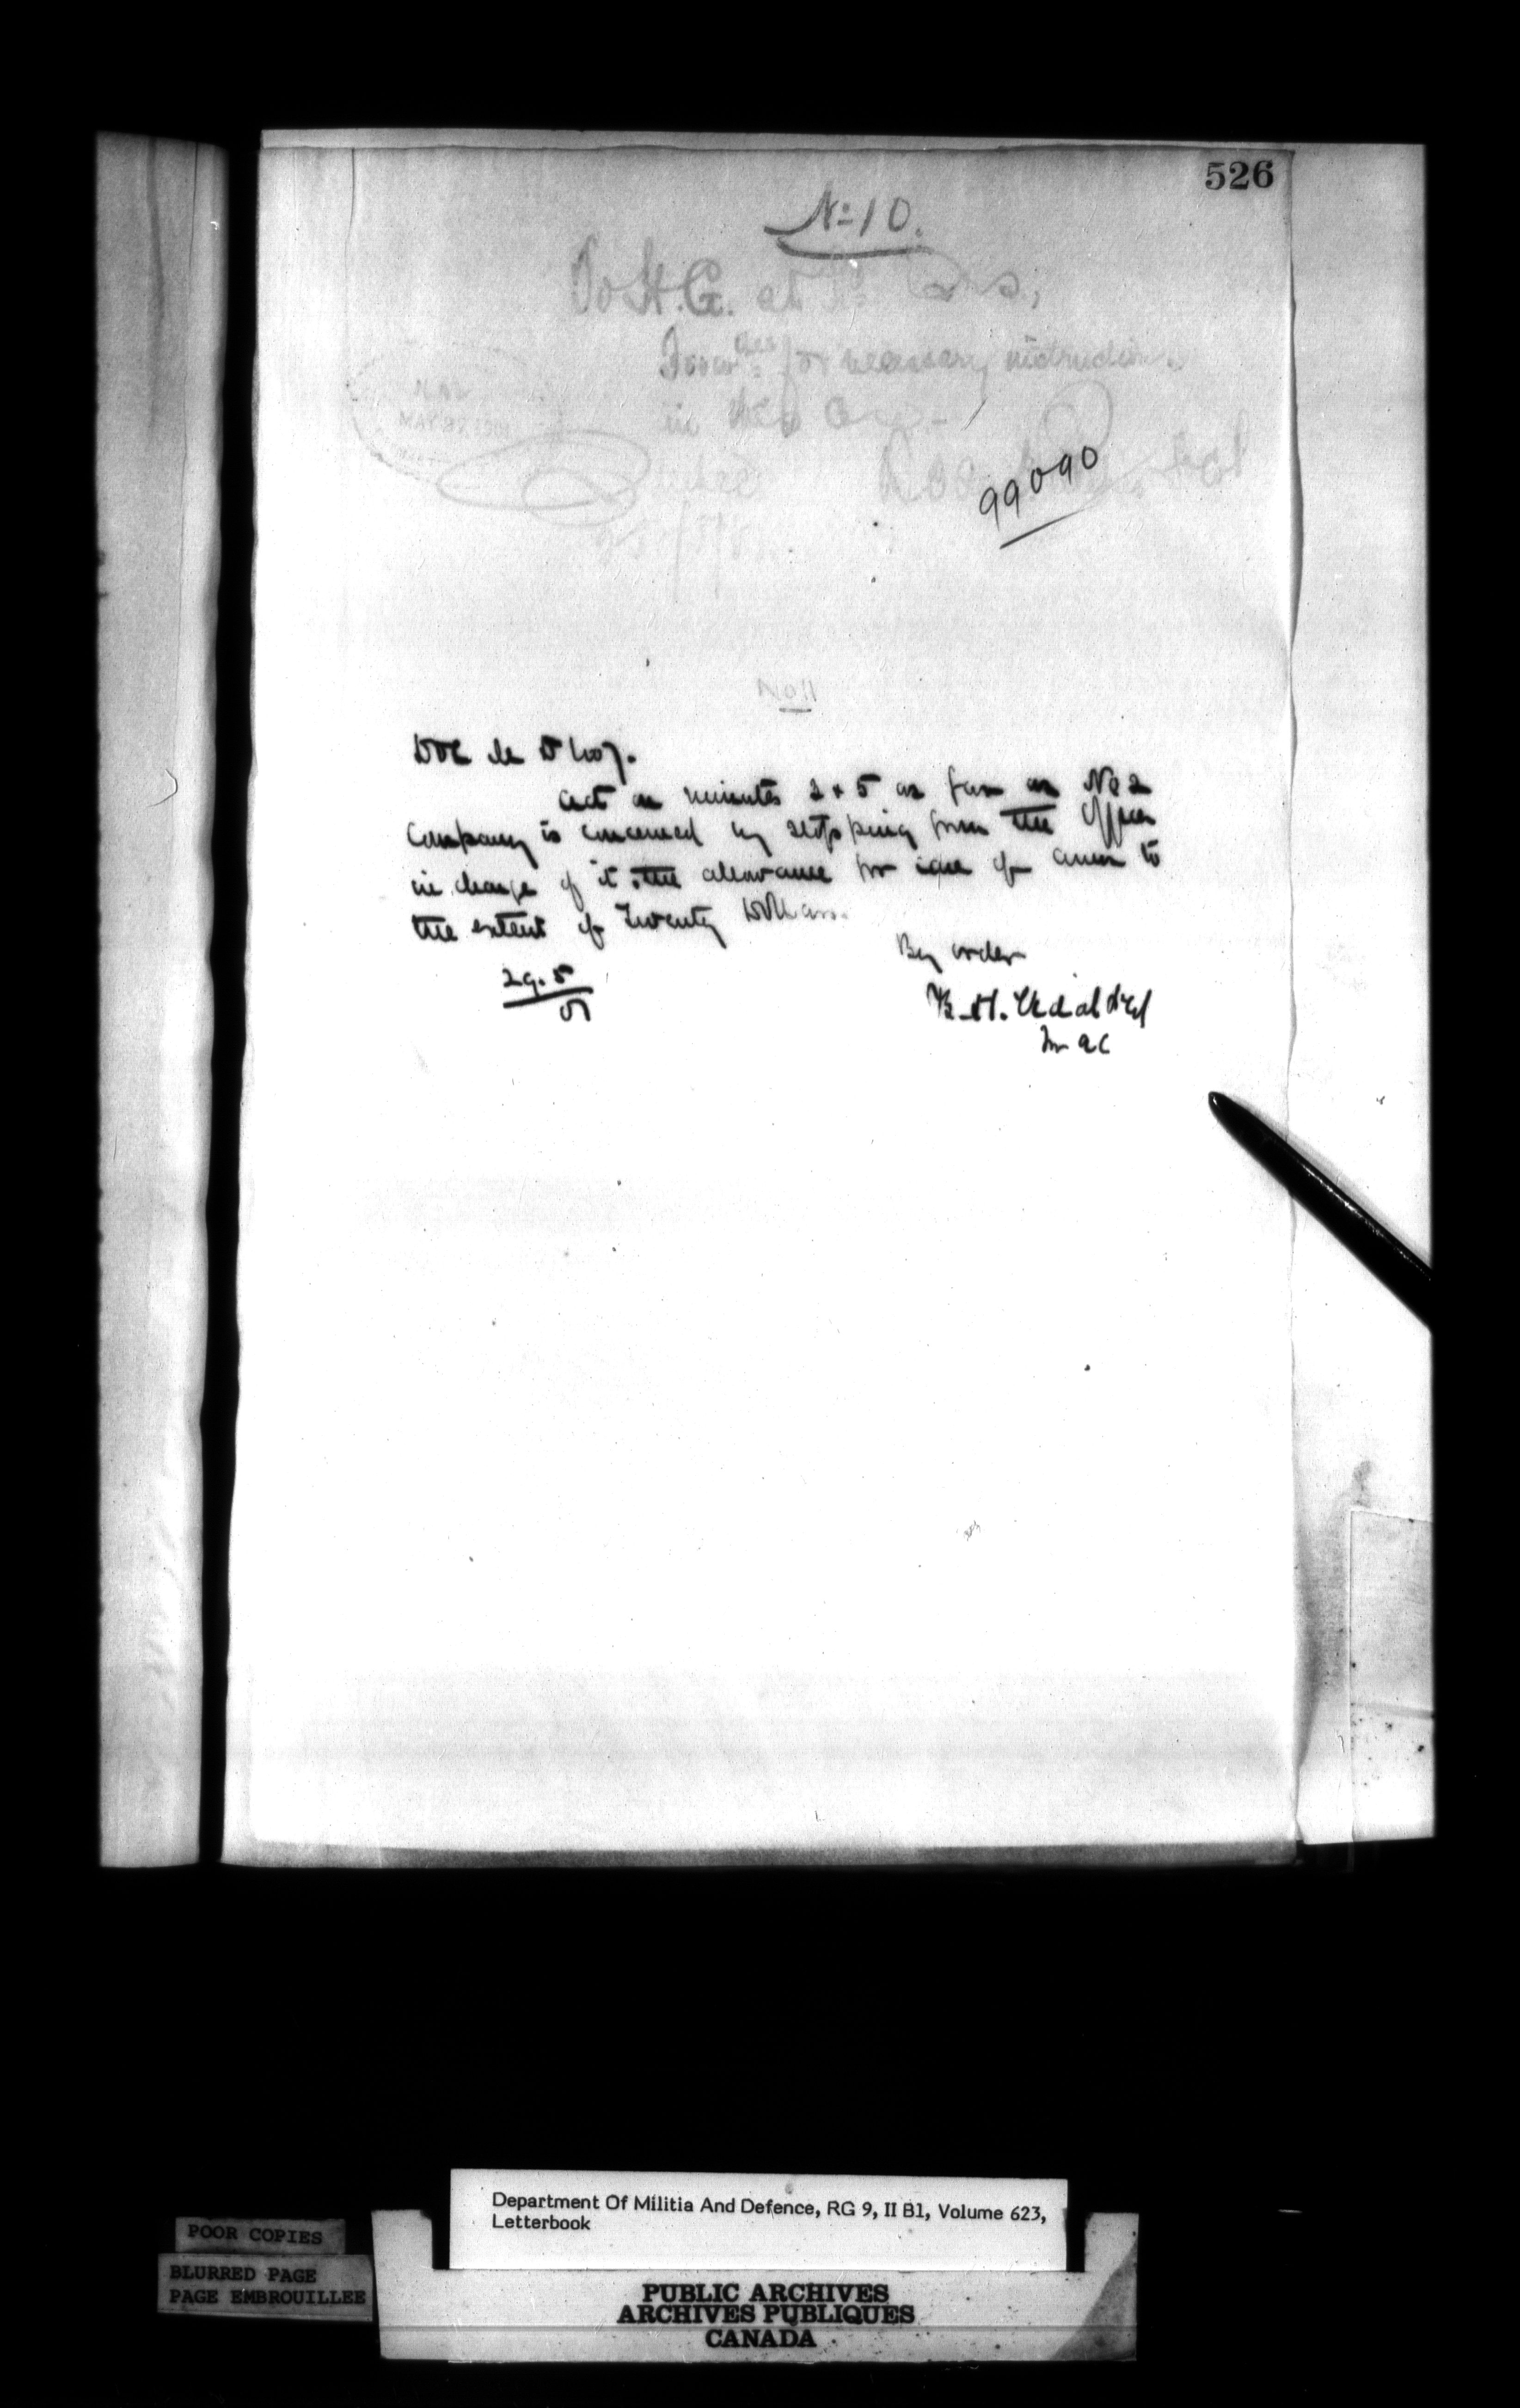 526
No 10.
To H.G. at
for necessary instruction
in this
MAY 27 1901
99090
No 11
act on minutes 2 & 5 as far as No 2
Company is concerned by stopping from the Officer
in charge of it the allowance for care of arms to
the extent of Twenty Dollars.
By order
29.5
Department Of Militia And Defence, RG 9, II B1, Volume 623,
Letterbook
POOR COPIES
BLURRED PAGE
PAGE EMBROUILLEE
PUBLIC ARCHIVES
ARCHIVES PUBLIQUES
CANADA